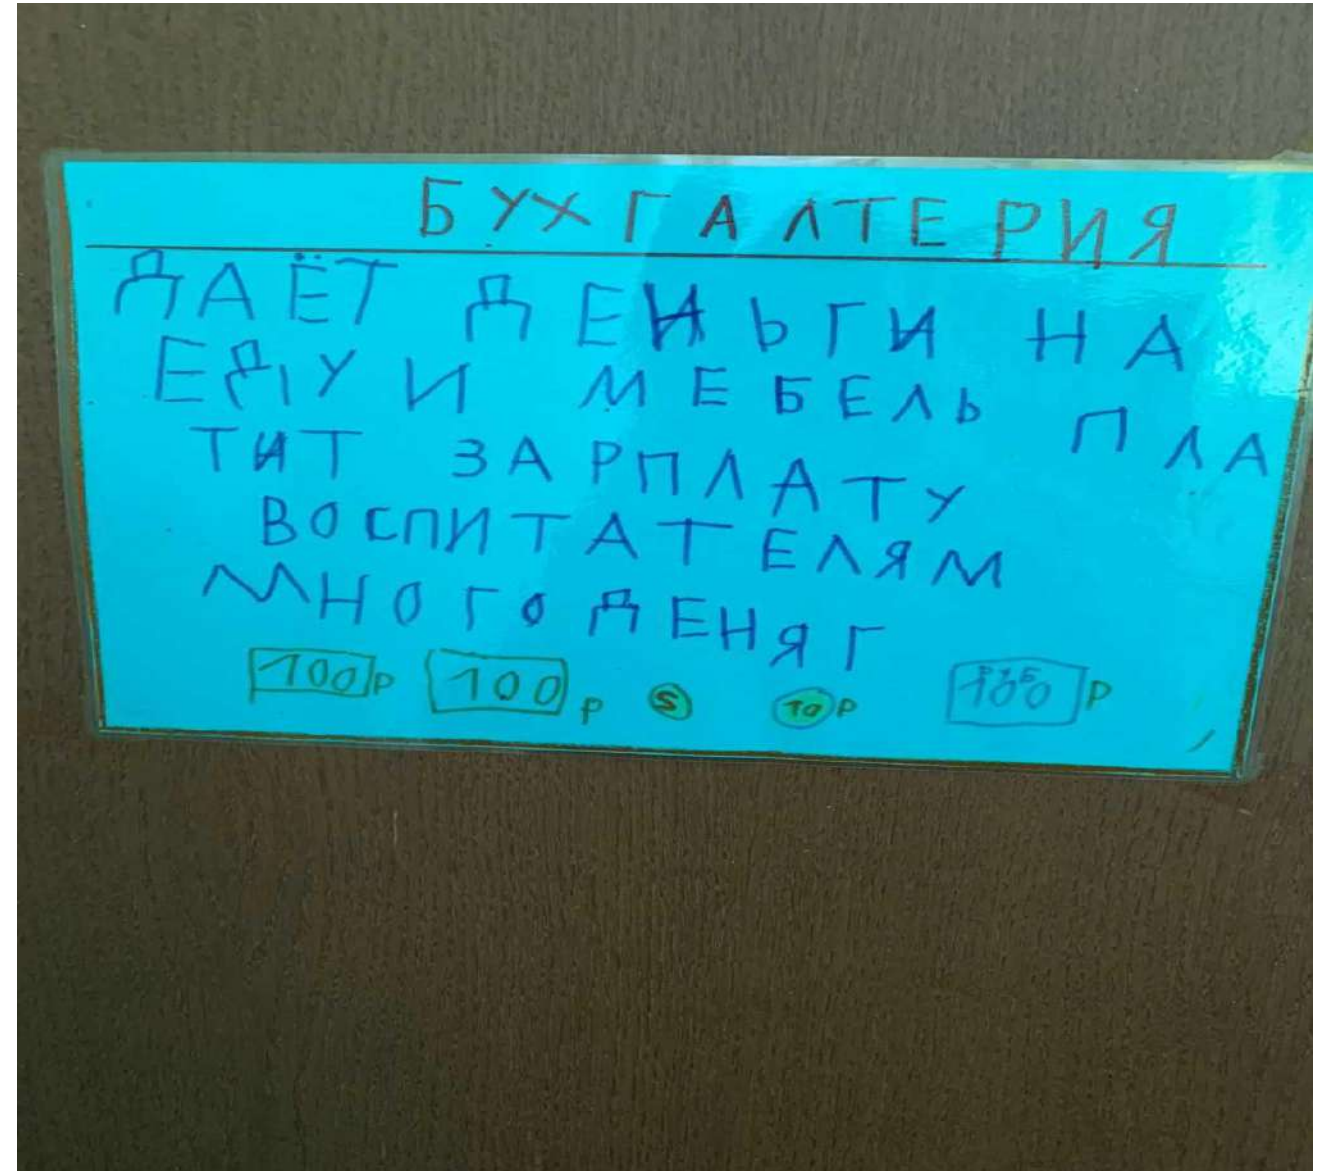 БУХГАЛТЕРИЯ
ДАЁТ ДЕНЬГИ НА
ЕДУ И МЕБЕЛЬ ПЛА
ТИТ ЗАРПЛАТУ
ВОСПИТАТЕЛЯМ
МНОГО ДЕНЯГ
100р 100р 5 10р 100р